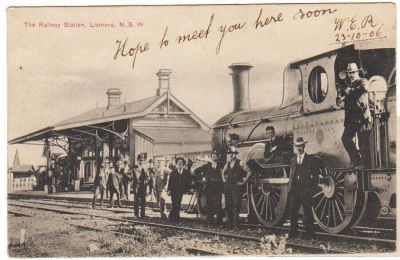 The Railway Station, Lismore, N.S.W.
Hope to meet you here soon
W.E.R.
23-10-06